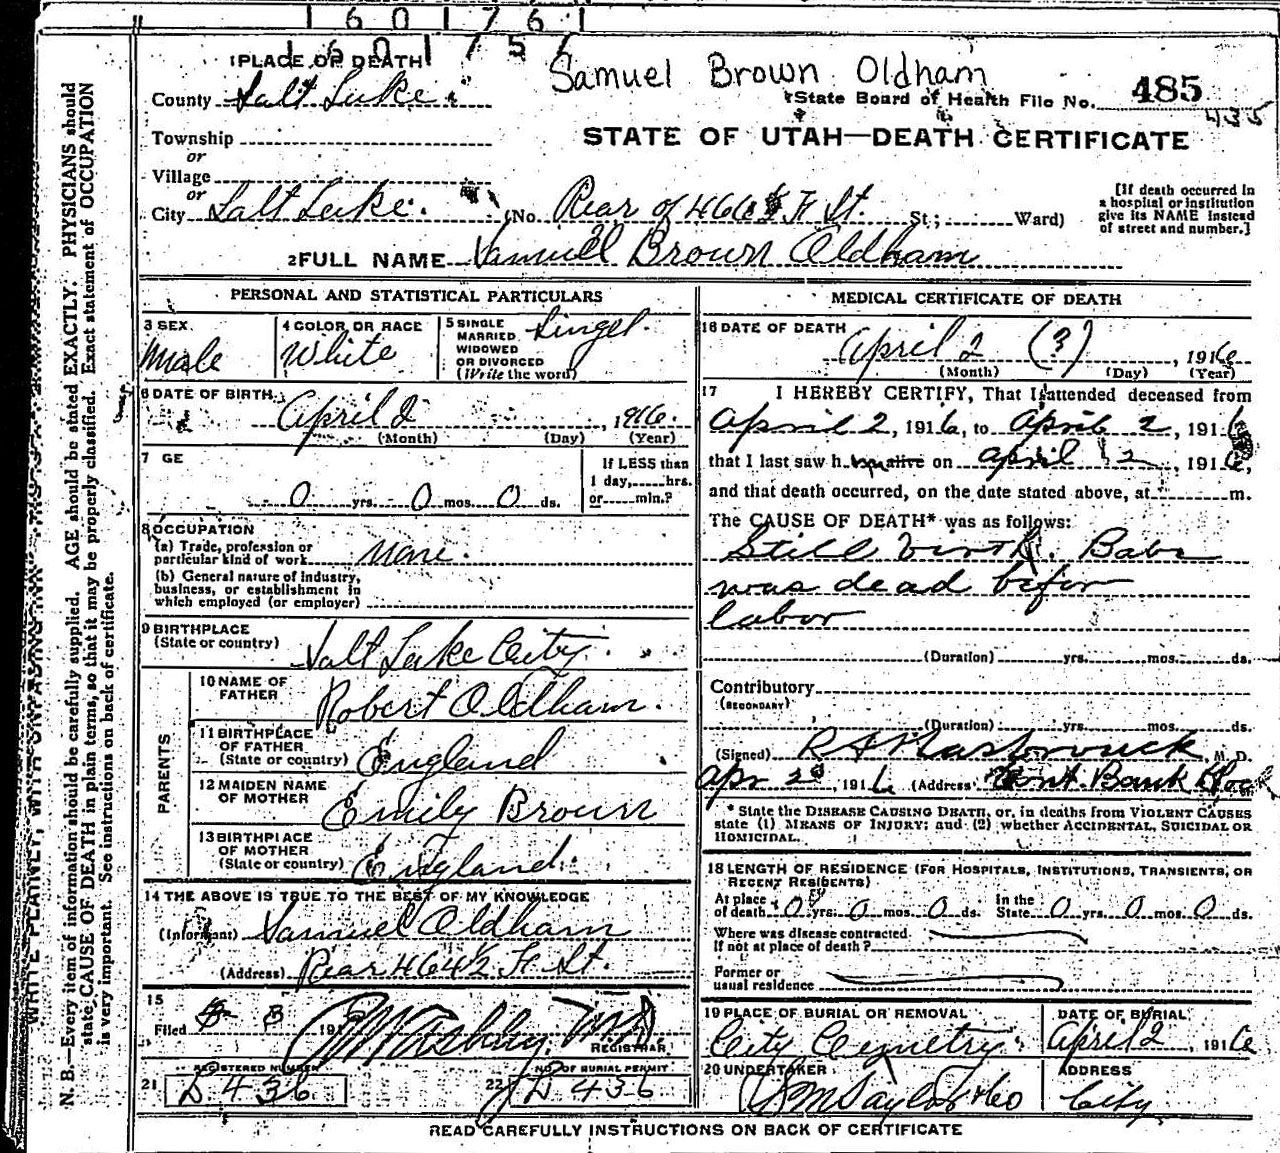 1 6 0 1 7 6 1
1 6 0 1 7 5 6
Samuel Brown Oldham
1 PLACE OF DEATH
County Salt Lake
State Board of Health File No. 485
435
STATE OF UTAH—DEATH CERTIFICATE
Township
or
Village
or
City Salt Lake. (No. Rear of 466 F St. St.; Ward)
[If death occurred in
a hospital or institution
give its NAME instead
of street and number.]
2 FULL NAME Samuel Brown Oldham
PERSONAL AND STATISTICAL PARTICULARS
3 SEX
Male
4 COLOR OR RACE
White
5 SINGLE
MARRIED
WIDOWED
OR DIVORCED
(Write the word)
Singel.
6 DATE OF BIRTH
April 2, 1916.
(Month) (Day) (Year)
7 GE
0 yrs. 0 mos. 0 ds.
If LESS than
1 day, hrs.
or min.?
8 OCCUPATION
(a) Trade, profession or
particular kind of work None.
(b) General nature of industry,
business, or establishment in
which employed (or employer)
9 BIRTHPLACE
(State or country) Salt Lake City.
PARENTS
10 NAME OF
FATHER Robert Oldham.
11 BIRTHPLACE
OF FATHER
(State or country) England
12 MAIDEN NAME
OF MOTHER Emily Brown
13 BIRTHPLACE
OF MOTHER
(State or country) England.
14 THE ABOVE IS TRUE TO THE BEST OF MY KNOWLEDGE
(Informant) Samuel Oldham
(Address) Rear 464½ F St.
15
Filed 191
REGISTRAR
REGISTERED NUMBER
21 D 436
NO. OF BURIAL PERMIT
22 D 436
MEDICAL CERTIFICATE OF DEATH
16 DATE OF DEATH
April 2 (?), 1916
(Month) (Day) (Year)
17 I HEREBY CERTIFY, That I attended deceased from
April 2, 1916, to April 2, 1916
that I last saw h alive on April 2, 1916,
and that death occurred, on the date stated above, at m.
The CAUSE OF DEATH* was as follows:
Still birth. Babe
was dead befor
labor
(Duration) yrs. mos. ds.
Contributory
(SECONDARY)
(Duration) yrs. mos. ds.
(Signed) R A Hasbrouck M. D.
Apr 2d 1916 (Address) Cont. Bank
* State the DISEASE CAUSING DEATH, or, in deaths from VIOLENT CAUSES
state (1) MEANS OF INJURY; and (2) whether ACCIDENTAL, SUICIDAL OR
HOMICIDAL.
18 LENGTH OF RESIDENCE (FOR HOSPITALS, INSTITUTIONS, TRANSIENTS, OR
RECENT RESIDENTS)
At place
of death 0 yrs. 0 mos. 0 ds.
In the
State 0 yrs. 0 mos. 0 ds.
Where was disease contracted.
If not at place of death?
Former or
usual residence
19 PLACE OF BURIAL OR REMOVAL
City Cemetry.
DATE OF BURIAL
April 2, 1916
20 UNDERTAKER
S M Taylor & Co
ADDRESS
City
READ CAREFULLY INSTRUCTIONS ON BACK OF CERTIFICATE
WRITE PLAINLY, WITH UNFADING INK—THIS IS A
N. B.—Every item of information should be carefully supplied. AGE should be stated EXACTLY. PHYSICIANS should
state CAUSE OF DEATH in plain terms, so that it may be properly classified. Exact statement of OCCUPATION
is very important. See instructions on back of certificate.